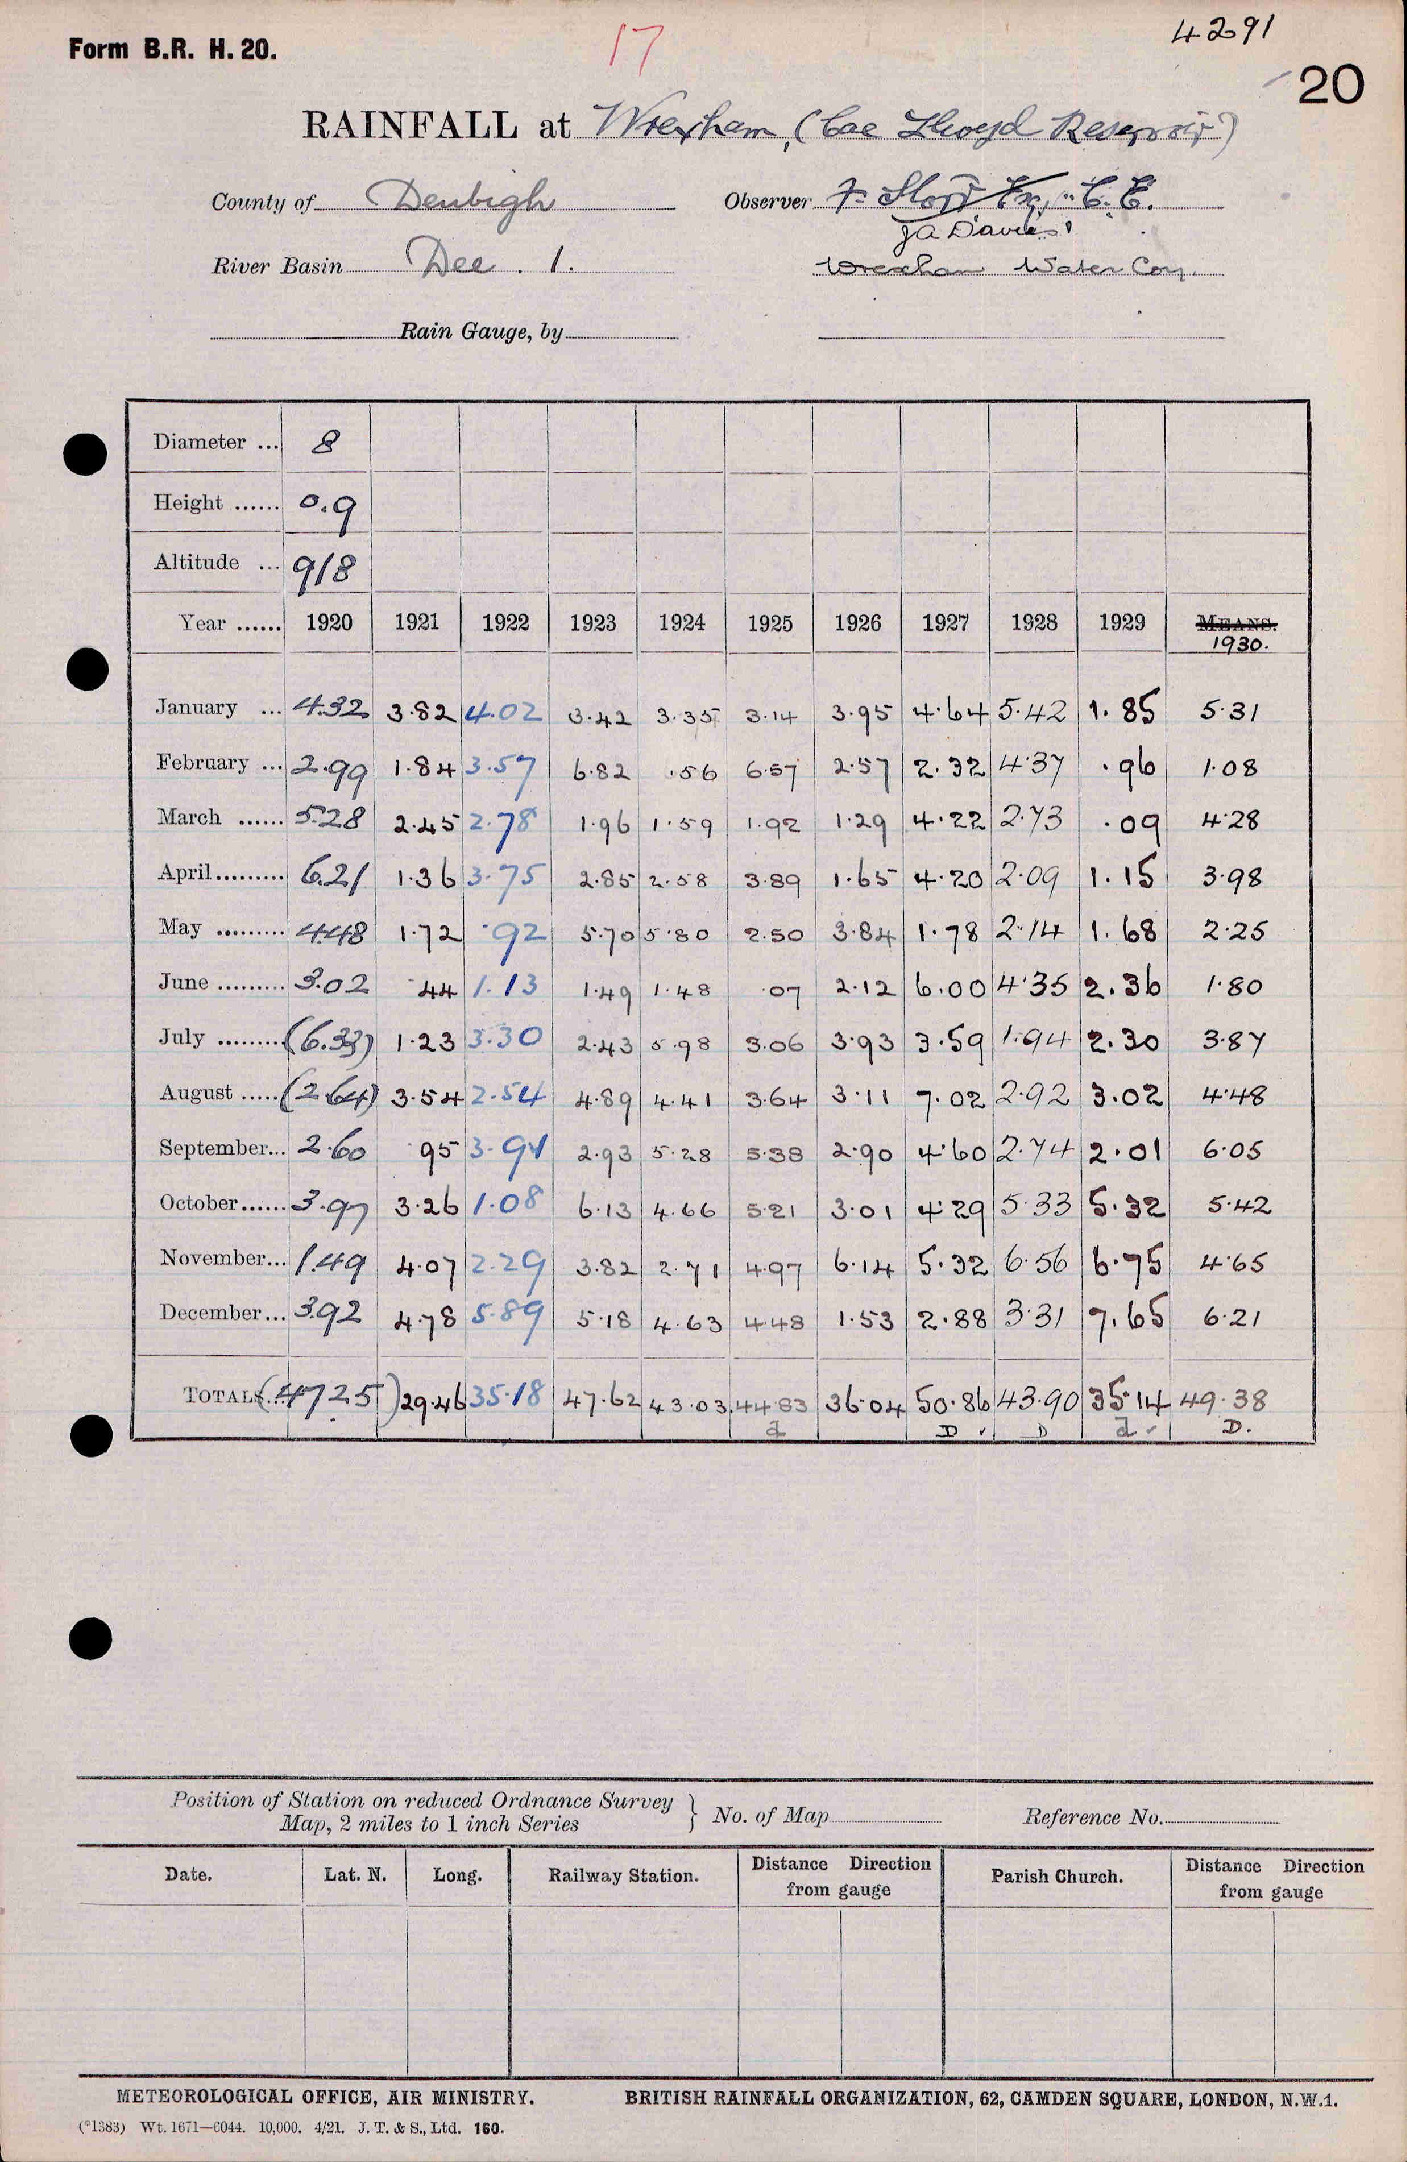 Form B.R. H. 20.
17
4291
20
RAINFALL at Wrexham, (Cae Llwyd Reservoir)
County of Denbigh Observer F. Storr Esq., C.E.
J A Davies
River Basin Dee. 1. Wrexham Water Coy.
Rain Gauge, by
Diameter ... 8
Height ...... 0.9
Altitude ... 918
Year ...... 1920 1921 1922 1923 1924 1925 1926 1927 1928 1929 MEANS.
1930.
January ... 4.32 3.82 4.02 3.42 3.35 3.14 3.95 4.64 5.42 1.85 5.31
February ... 2.99 1.84 3.57 6.82 .56 6.57 2.57 2.32 4.37 .96 1.08
March ...... 5.28 2.45 2.78 1.96 1.59 1.92 1.29 4.22 2.73 .09 4.28
April ......... 6.21 1.36 3.75 2.85 2.58 3.89 1.65 4.20 2.09 1.15 3.98
May ......... 4.48 1.72 .92 5.70 5.80 2.50 3.84 1.78 2.14 1.68 2.25
June ......... 3.02 .44 1.13 1.49 1.48 .07 2.12 6.00 4.35 2.36 1.80
July ......... (6.33) 1.23 3.30 2.43 5.98 3.06 3.93 3.59 1.94 2.30 3.87
August ..... (2.64) 3.54 2.54 4.89 4.41 3.64 3.11 7.02 2.92 3.02 4.48
September... 2.60 .95 3.91 2.93 5.28 5.38 2.90 4.60 2.74 2.01 6.05
October ...... 3.97 3.26 1.08 6.13 4.66 5.21 3.01 4.29 5.33 5.32 5.42
November... 1.49 4.07 2.29 3.82 2.71 4.97 6.14 5.32 6.56 6.75 4.65
December... 3.92 4.78 5.89 5.18 4.63 4.48 1.53 2.88 3.31 7.65 6.21
TOTALS (47.25) 29.46 35.18 47.62 43.03 44.83 36.04 50.86 43.90 35.14 49.38
d D D d D.
Position of Station on reduced Ordnance Survey
Map, 2 miles to 1 inch Series } No. of Map Reference No.
Date. Lat. N. Long. Railway Station. Distance Direction from gauge Parish Church. Distance Direction from gauge
METEOROLOGICAL OFFICE, AIR MINISTRY. BRITISH RAINFALL ORGANIZATION, 62, CAMDEN SQUARE, LONDON, N.W.1.
(*1383) Wt. 1671—C044. 10,000. 4/21. J. T. & S., Ltd. 160.